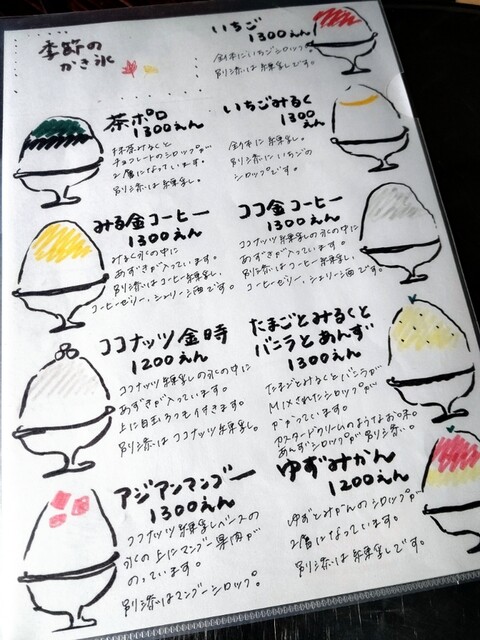 季節の
かき氷
いちご
1300えん
氷にいちごシロップ。
別添は練乳です。
茶ポロ
1300えん
抹茶みるくと
チョコレートのシロップが
2層になっています。
別添は練乳。
いちごみるく
1300
えん
氷に練乳。
別添にいちごの
シロップです。
みる金コーヒー
1300えん
みるく氷の中に
あずきが入っています。
別添はコーヒー練乳、
コーヒーゼリー、シェリー酒です。
ココ金コーヒー
1300えん
ココナッツ練乳の氷の中に
あずきが入っています。
別添はコーヒー練乳、
コーヒーゼリー、シェリー酒です。
ココナッツ金時
1200えん
ココナッツ練乳の氷の中に
あずきが入っています。
上に白玉3つも付きます。
別添はココナッツ練乳。
たまごとみるくと
バニラとあんず
1300えん
たまごとみるくとバニラが
MIXされたシロップが
かかっています。
カスタードクリームのようなお味。
あんずシロップが別添。
アジアンマンゴー
1300えん
ココナッツ練乳ベースの
氷の上にマンゴー果肉が
のっています。
別添はマンゴーシロップ。
ゆずみかん
1200えん
ゆずとみかんのシロップが
2層になっています。
別添は練乳です。